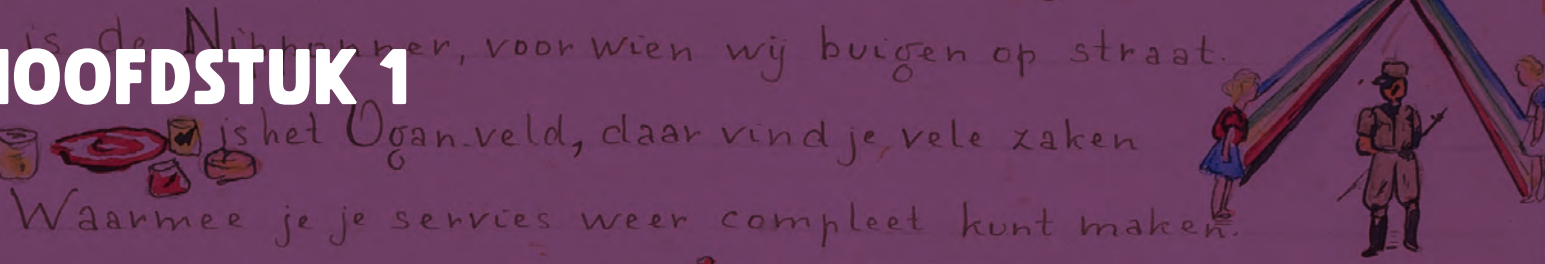 is de Nipponner, voor wien wij buigen op straat.
HOOFDSTUK 1
is het Ogan-veld, daar vind je vele zaken
Waarmee je je servies weer compleet kunt maken.